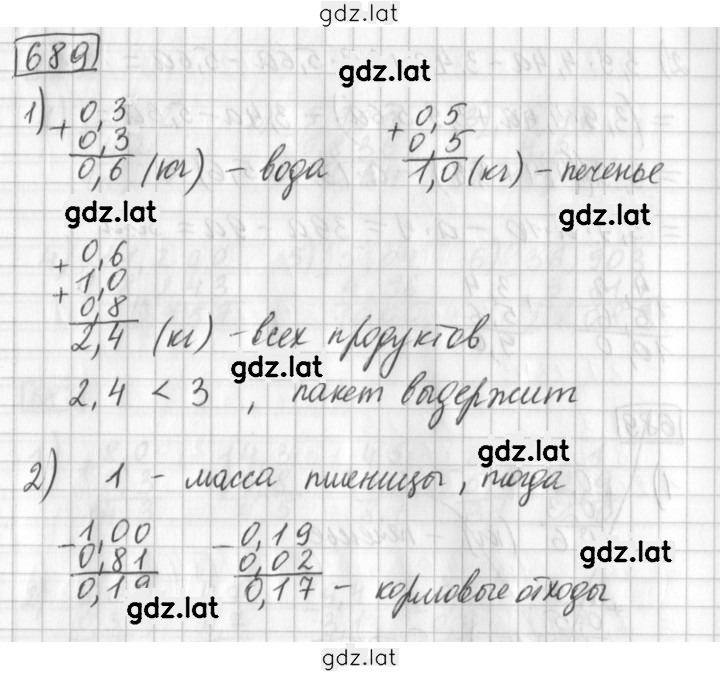 gdz.lat
689
gdz.lat
1) + 0,3 + 0,5
0,3 0,5
0,6 (кг) – вода 1,0 (кг) – печенье
gdz.lat gdz.lat
+ 0,6
+ 1,0
0,8
2,4 (кг) – всех продуктов
gdz.lat
2,4 < 3 , пакет выдержит
gdz.lat
2) 1 – масса пшеницы, тогда
– 1,00 – 0,19
0,81 0,02
gdz.lat
0,19 0,17 – кормовые отходы
gdz.lat
gdz.lat